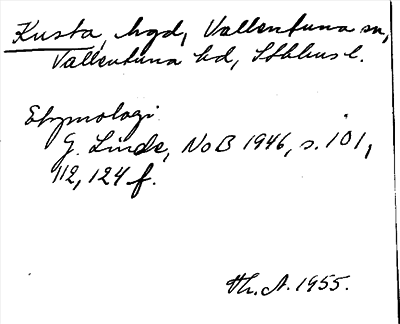 Kusta, hgd, Vallentuna sn,
Vallentuna hd, Sthlms l.
Etymologi
G. Linde, NoB 1946, s. 101,
112, 124 f.
Th. A. 1955.